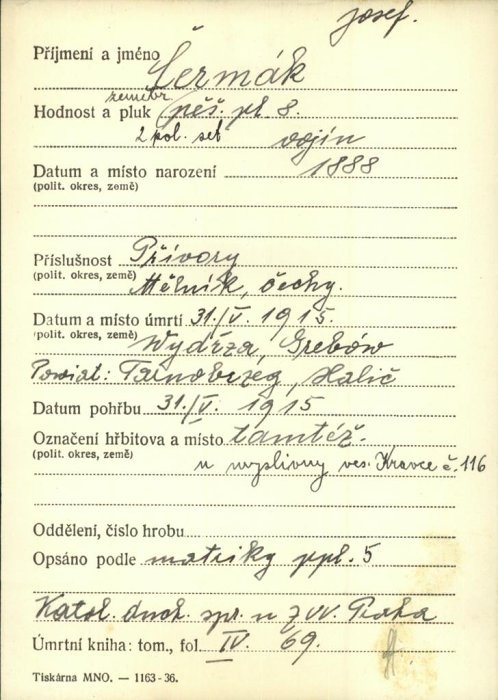 Josef.
Příjmení a jméno Čermák
zeměbr.
Hodnost a pluk pěš. pl. 8.
2 pol. set vojín
Datum a místo narození 1888
(polit. okres, země)
Příslušnost Přívory
(polit. okres, země) Mělník, Čechy.
Datum a místo úmrtí 31./V. 1915.
(polit. okres, země) Wydrza, Grebów
Powiat: Tarnobrzeg, Halič
Datum pohřbu 31./V. 1915
Označení hřbitova a místo tamtéž.
(polit. okres, země) u myslivny ves. Kravce č. 116
Oddělení, číslo hrobu
Opsáno podle matriky ppl. 5
Katol. duch. spr. u ZVV. Praha
Úmrtní kniha: tom., fol. IV. 69.
Tiskárna MNO. — 1163-36.